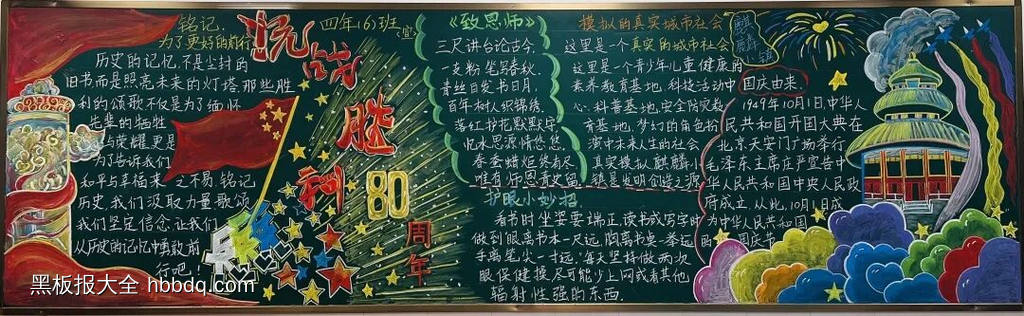 铭记，
为了更好的前行
历史的记忆，不是尘封的
旧书，而是照亮未来的灯塔，那些胜
利的颂歌，不仅是为了缅怀
先辈的牺牲
与荣耀，更是
为了告诉我们
和平与幸福来之不易。铭记
历史，我们汲取力量，歌颂
我们坚定信念，让我们
从历史的记忆中勇敢前
行吧！
抗战
胜
利
80
周
年
四年(6)班
宣
《致恩师》
三尺讲台论古今，
一支粉笔写春秋，
青丝白发书日月，
百年树人织锦绣，
落红护花默默守，
忆水思源情悠悠，
春蚕蜡炬终有尽，
唯有师恩青史留。
模拟的真实城市社会
这里是一个真实的城市社会
这里是一个青少年儿童健康的
素养教育基地，科技活动中
心、科普基地、安全防灾教
育基地，梦幻的角色扮
演中未来人生的社会
真实模拟，麒麟小
镇是发明创造之源
护眼小妙招
看书时坐姿要端正，读书或写字时
做到眼离书本一尺远，胸离书桌一拳远
手离笔尖一寸远。每天坚持做两次
眼保健操，尽可能少上网或看其他
辐射性强的东西。
国庆由来
1949年10月1日，中华人
民共和国开国大典在
北京天安门广场举行
毛泽东主席庄严宣告中
华人民共和国中央人民政
府成立，从此，10月1日成
为中华人民共和国
国庆节
黑板报大全 hbbdq.com